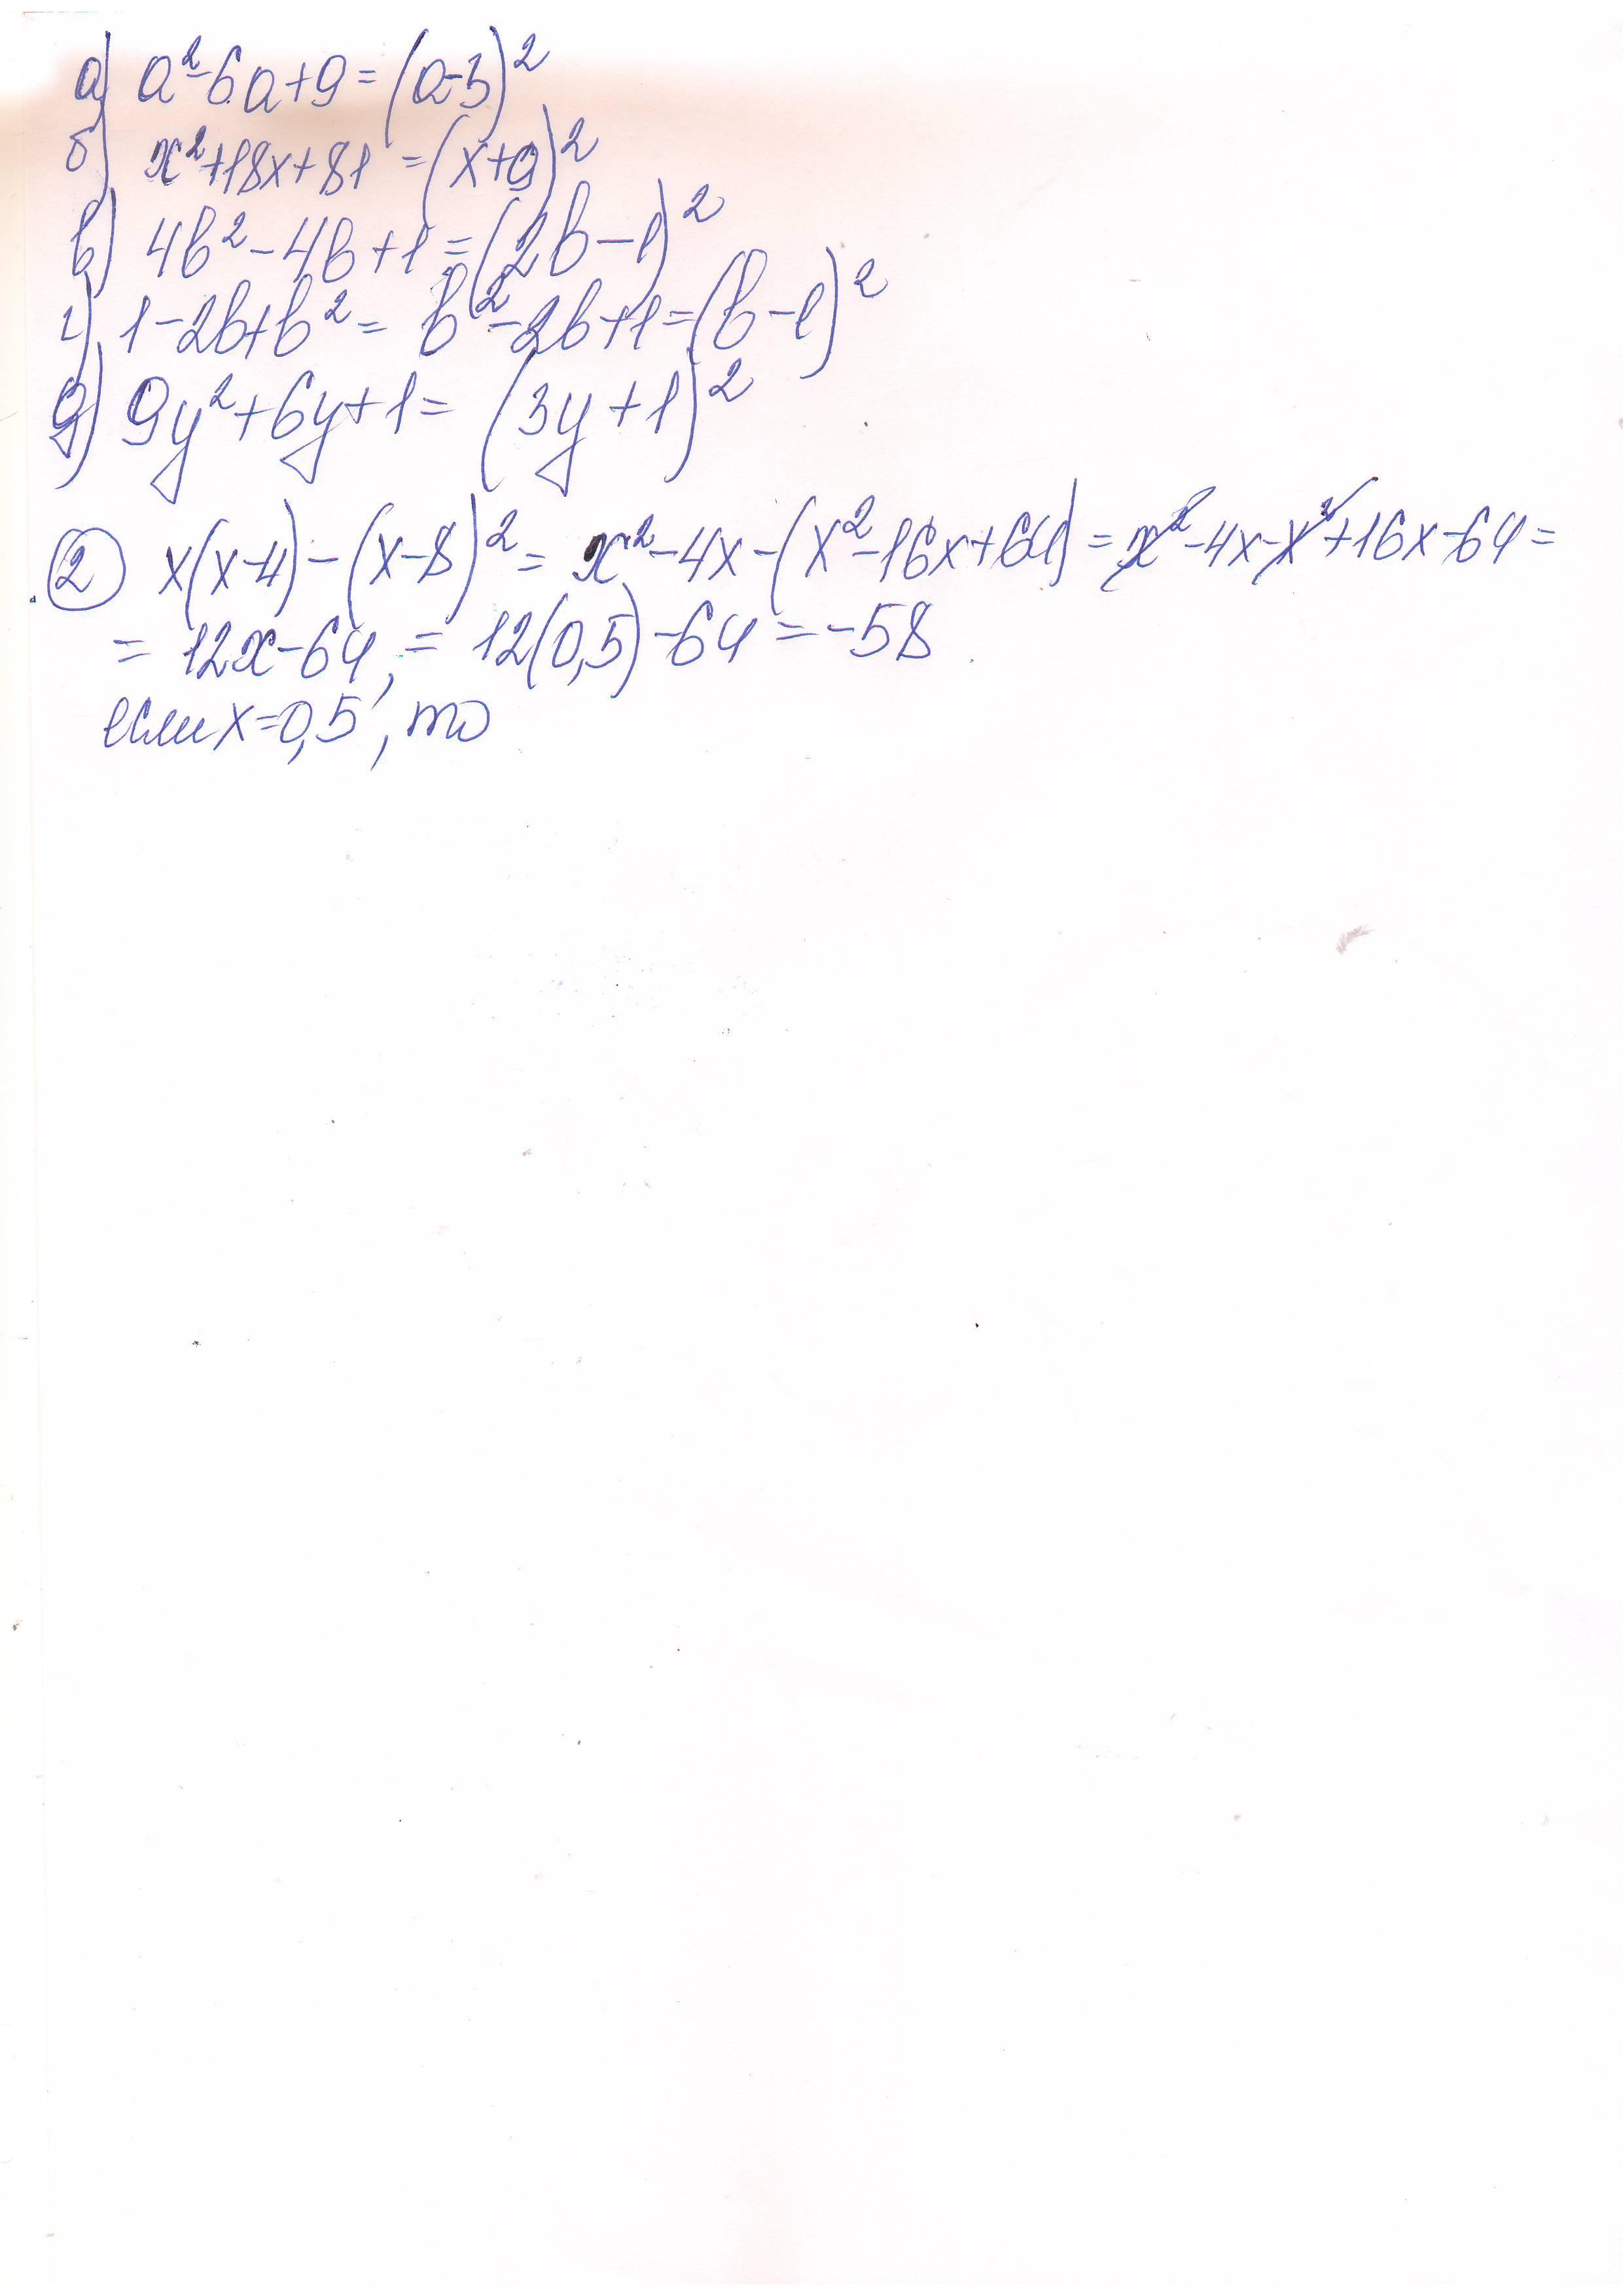 а) a²-6a+9=(a-3)²
б) x²+18x+81=(x+9)²
в) 4b²-4b+1=(2b-1)²
г) 1-2b+b²=b²-2b+1=(b-1)²
д) 9y²+6y+1=(3y+1)²
2 x(x-4)-(x-8)²=x²-4x-(x²-16x+64)=x²-4x-x²+16x-64=
=12x-64,=12(0,5)-64=-58
если x=0,5, то